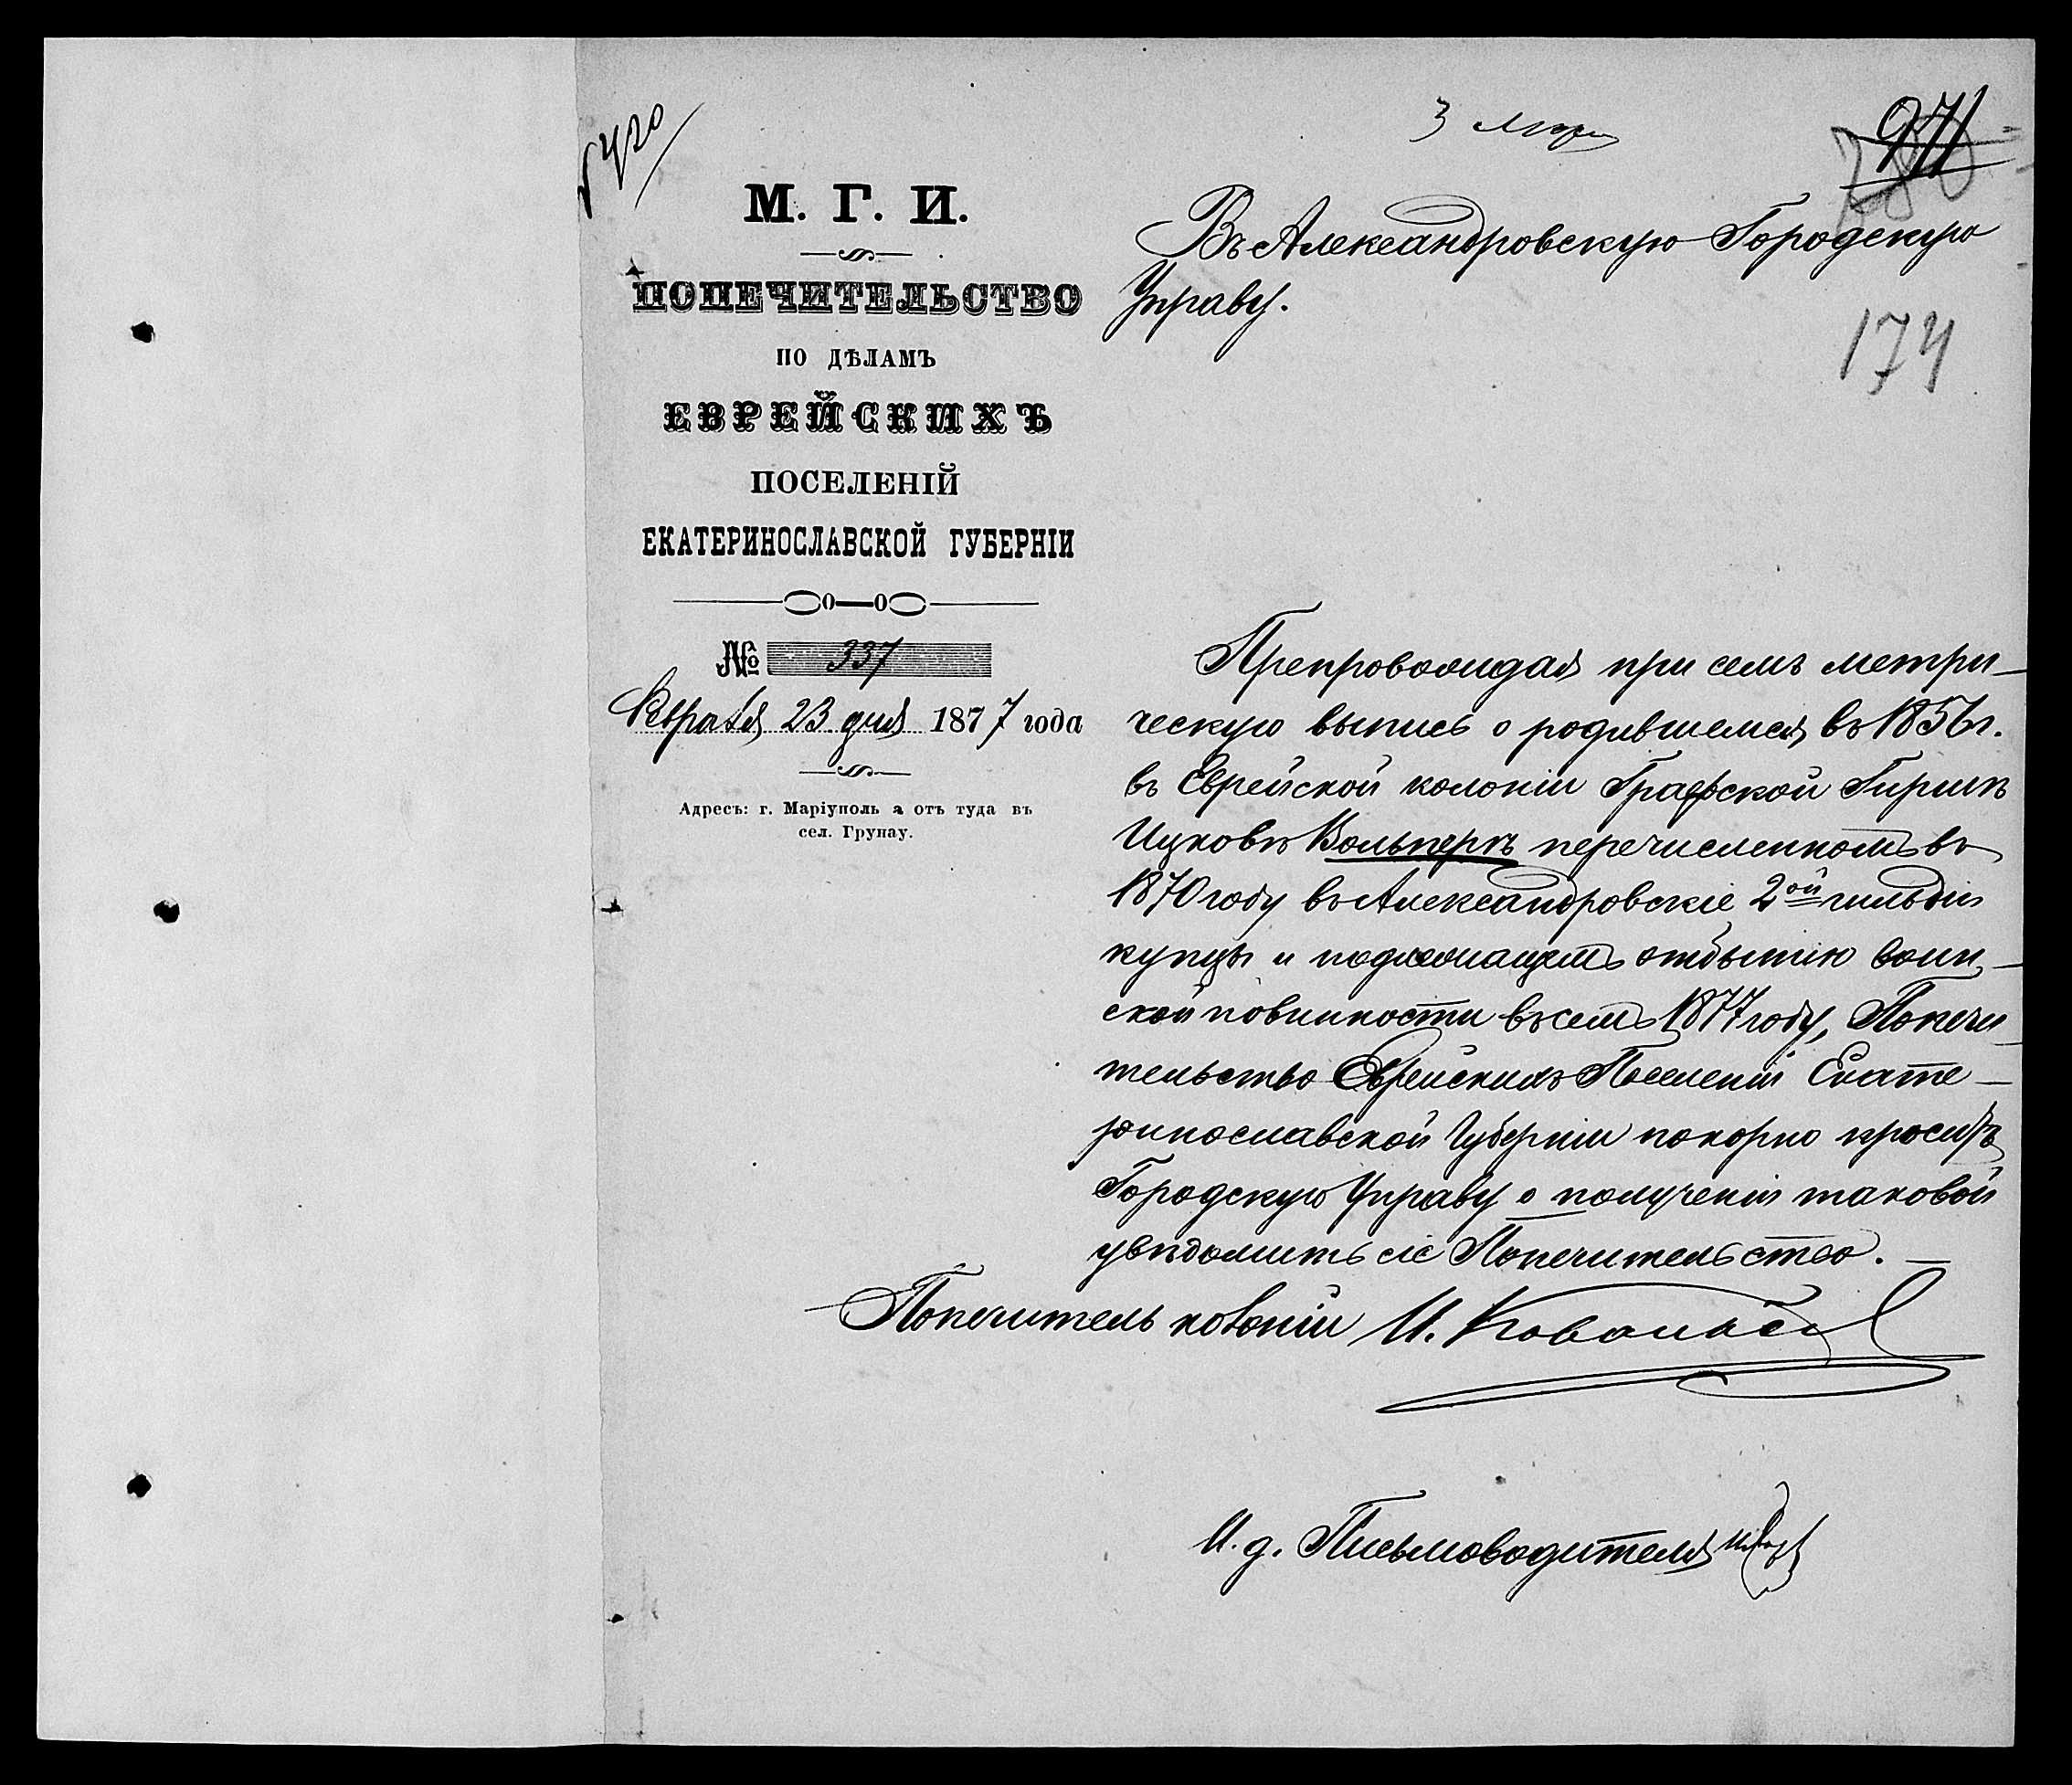 № 420
3 Мар
271
М. Г. И.
ПОПЕЧИТЕЛЬСТВО
ПО ДѢЛАМЪ
ЕВРЕЙСКИХЪ
ПОСЕЛЕНІЙ
ЕКАТЕРИНОСЛАВСКОЙ ГУБЕРНІИ
№ 337
Февраля 23 дня 1877 года
Адресъ: г. Маріуполь а отъ туда въ
сел. Грунау.
Въ Александровскую Городскую
Управу.
174
Препровождая при семъ метри-
ческую выпись о родившемся въ 1856 г.
въ Еврейской колоніи Графской Гиршѣ
Ицковѣ Вольперѣ перечисленномъ въ
1870 году въ Александровскіе 2ой гильдіи
купцы и подлежащемъ отбытію воин-
ской повинности въ семъ 1877 году, Попечи-
тельство Еврейскихъ Поселеній Екате-
ринославской Губерніи покорно проситъ
Городскую Управу о полученіи таковой
увѣдомить сіе Попечительство.
Попечитель колоніи И.
И. д. Письмоводителя